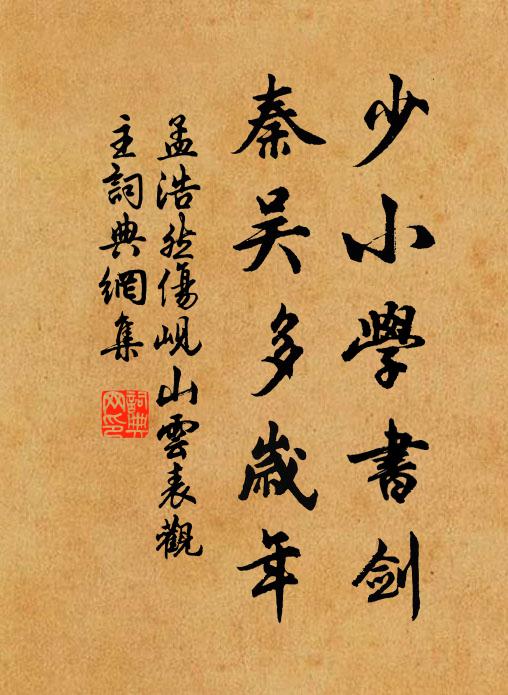 少小學書劍
秦吴多歲年
孟浩然傷峴山雲表觀
主詞典網集
詞典
网印